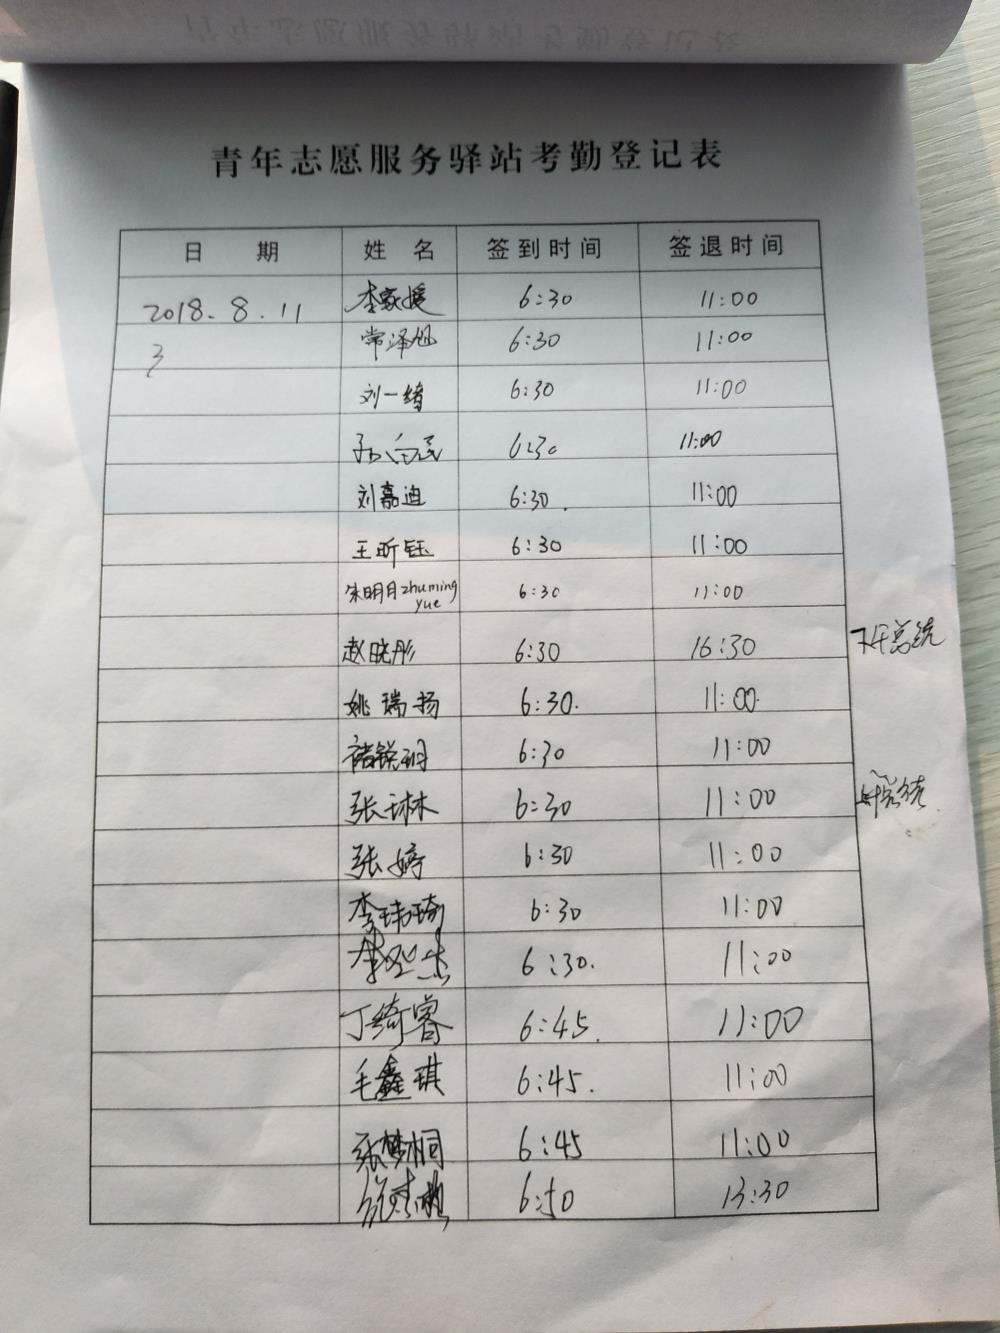 青年志愿服务驿站考勤登记表
日 期 姓 名 签到时间 签退时间
2018.8.11 李家媛 6:30 11:00
3 常泽旭 6:30 11:00
刘一绪 6:30 11:00
6:30 11:00
刘嘉迪 6:30. 11:00
王昕钰 6:30 11:00
朱明月zhuming 6:30 11:00
yue
赵晓彤 6:30 16:30 下午总统
姚瑞扬 6:30. 11:00.
褚锐玥 6:30 11:00
张琳林 6:30 11:00
张婷 6:30 11:00
李玮琦 6:30 11:00
6:30. 11:00
丁绮睿 6:45. 11:00
毛鑫琪 6:45. 11:00
张梦桐 6:45 11:00
6:50 13:30